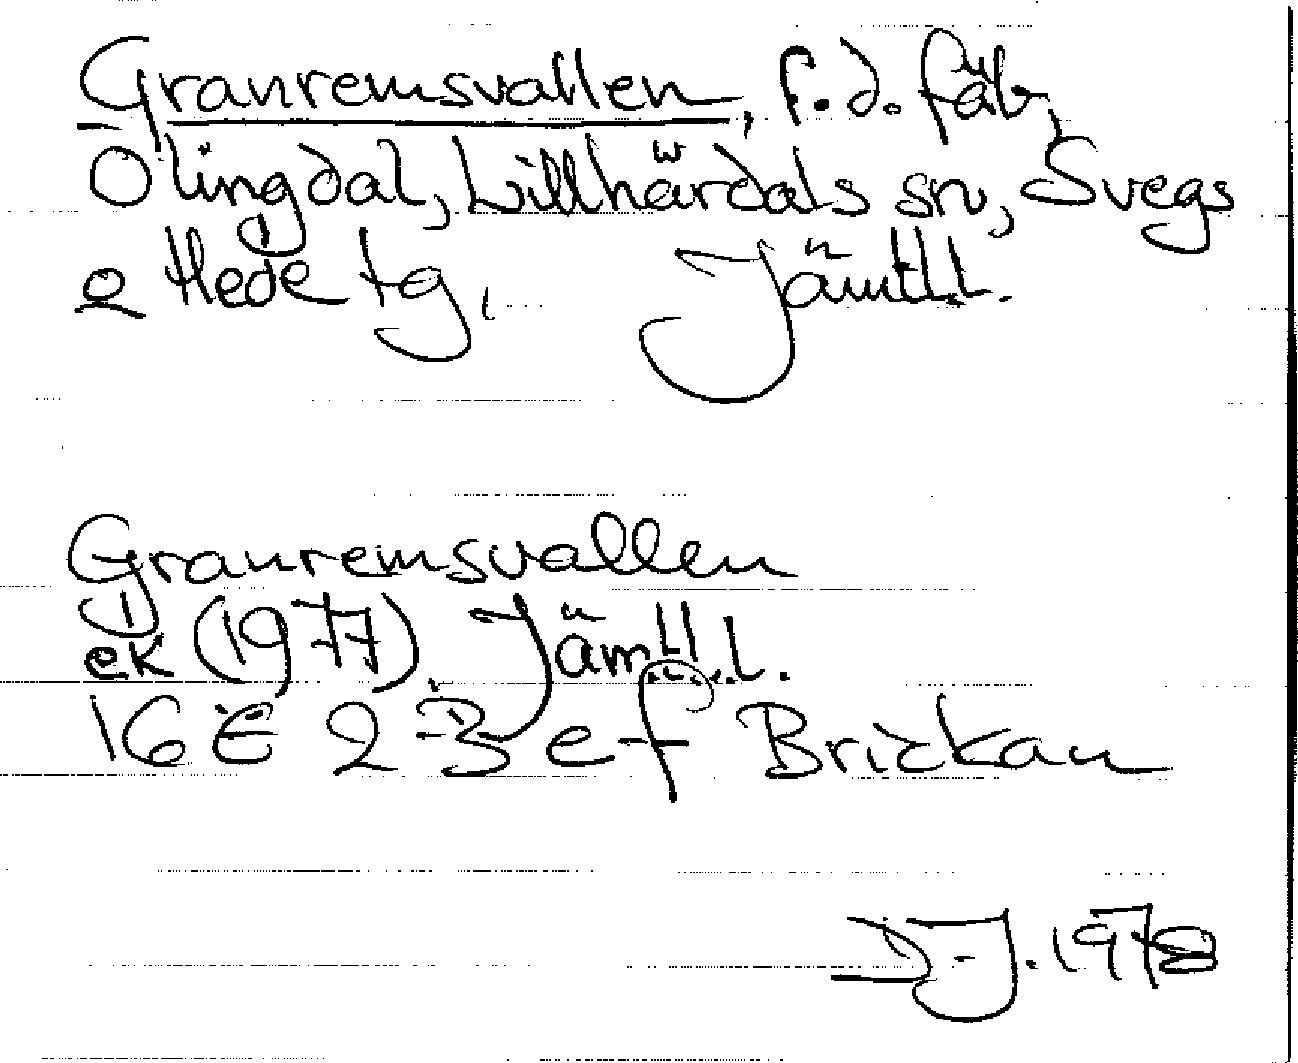 Granremsvallen, f.d. fäb,
Olingdal, Lillhärdals sn, Svegs
o Hede tg, Jämtl.l.
Granremsvallen
ek (1977) Jämtl.l.
16 E 2-3 e-f Brickan
D-J. 1978